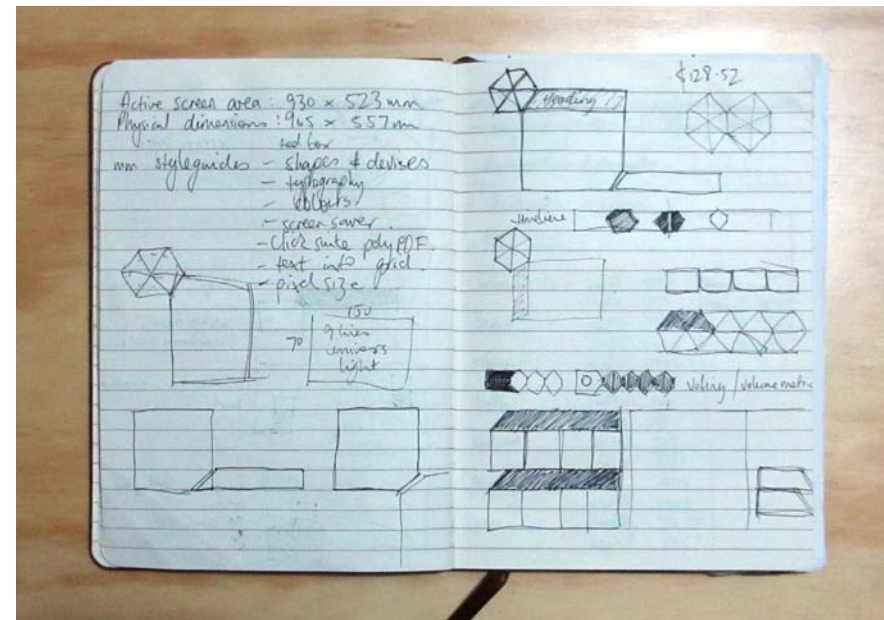 Active screen area : 930 x 523 mm
Physical dimensions : 965 x 557 mm
text box
mm styleguides - shapes & devises
- typography
- colours
- screen saver
- text into grid.
- pixel size
150
70
9 lines
univers
light
$128.52
Heading
timeline
voting / volumemetric